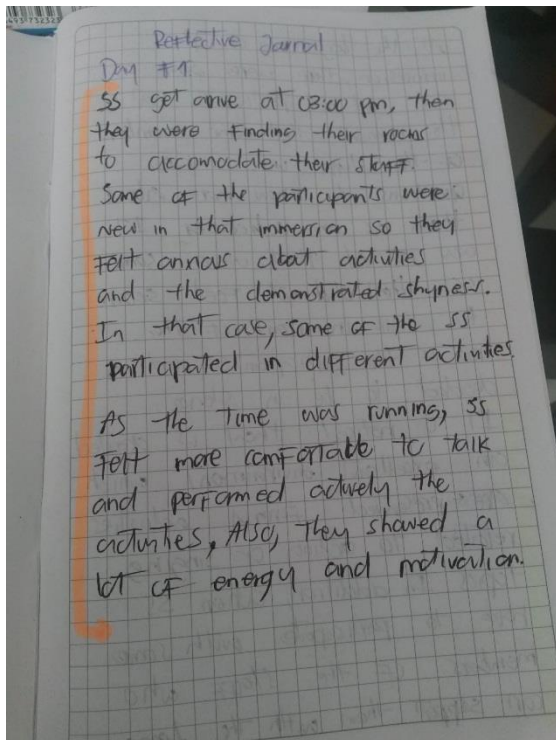 Reflective Journal
Day #1
SS get arrive at 03:00 pm, then
they were finding their rooms
to accomodate their stuff.
Some of the participants were
new in that immersion so they
felt about activities
and the demonstrated shyness.
In that case, some of the ss
participated in different activities
As the time was running, ss
felt more comfortable to talk
and performed actively the
activities, Also, they showed a
lot of energy and motivation.